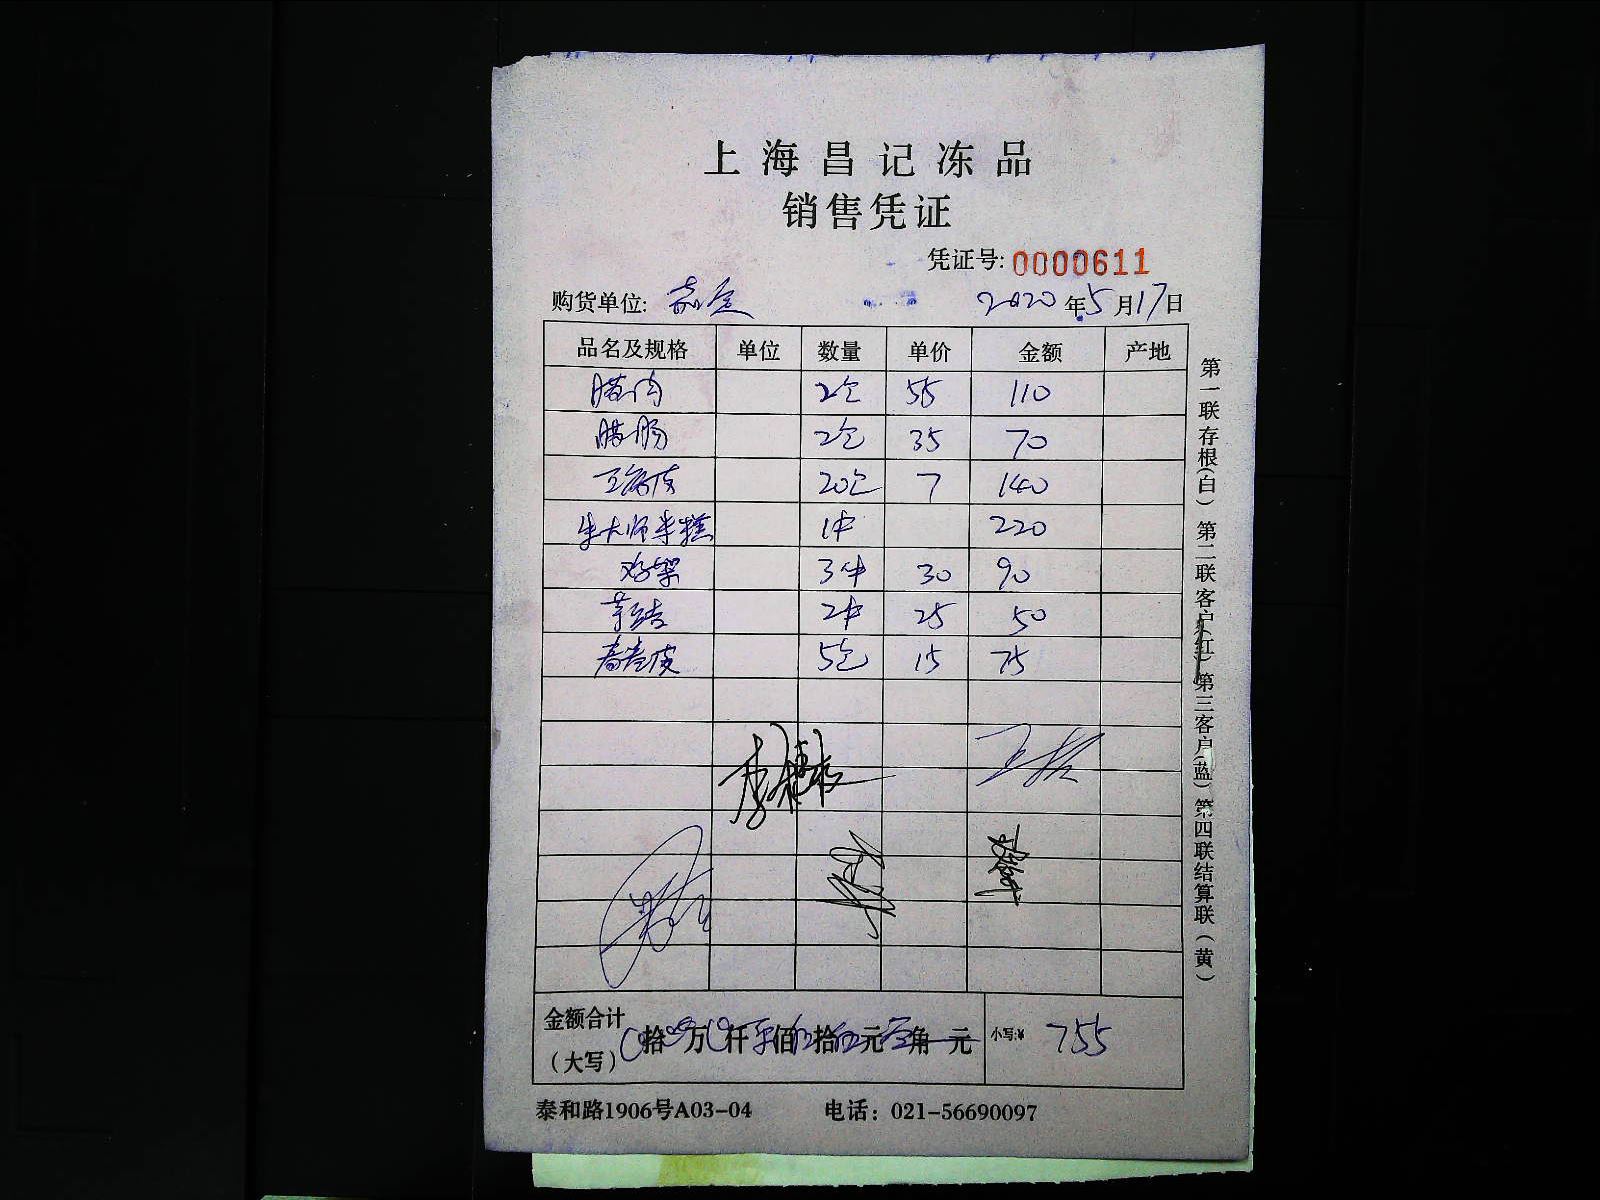 上海昌记冻品
销售凭证
凭证号: 0000611
购货单位: 嘉定 2020年5月17日
品名及规格 单位 数量 单价 金额 产地
腊肉 2包 55 110
腊肠 2包 35 70
20包 7 140
朱大师年糕 1件 220
鸡架 3件 30 90
芋结 2件 25 50
春卷皮 5包 15 75
金额合计
(大写) 拾 万 仟 柒佰 伍拾 伍元 零角 元 小写:¥ 755
泰和路1906号A03-04 电话: 021-56690097
第一联存根(白) 第二联客户(红) 第三客户(蓝) 第四联结算联(黄)